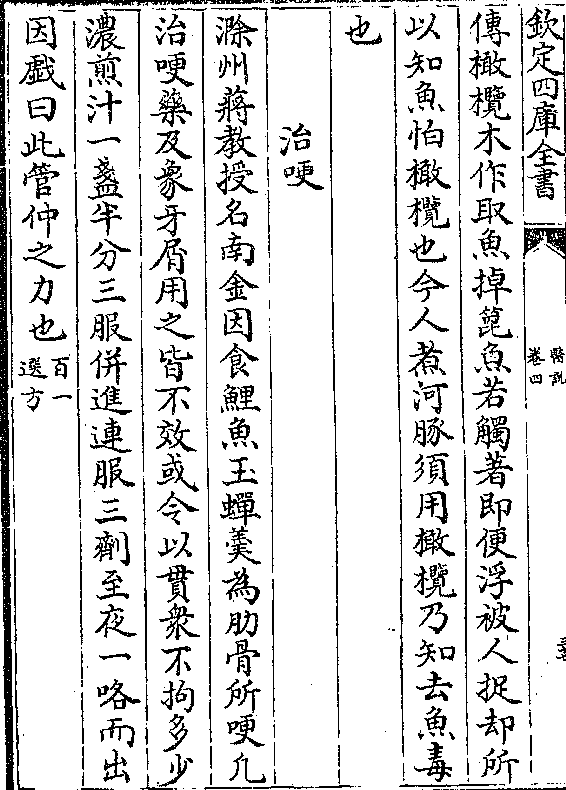 欽定四庫全書
醫説
卷四
傳橄欖木作取魚掉篦魚若觸著即便浮被人捉却所
以知魚怕橄欖也今人煮河豚須用橄欖乃知去魚毒
也
治哽
滁州蔣教授名南金因食鯉魚玉蟬羮為肋骨所哽凡
治哽藥及象牙屑用之皆不效或令以貫衆不拘多少
濃煎汁一盞半分三服併進連服三劑至夜一咯而出
因戲曰此管仲之力也百一
選方